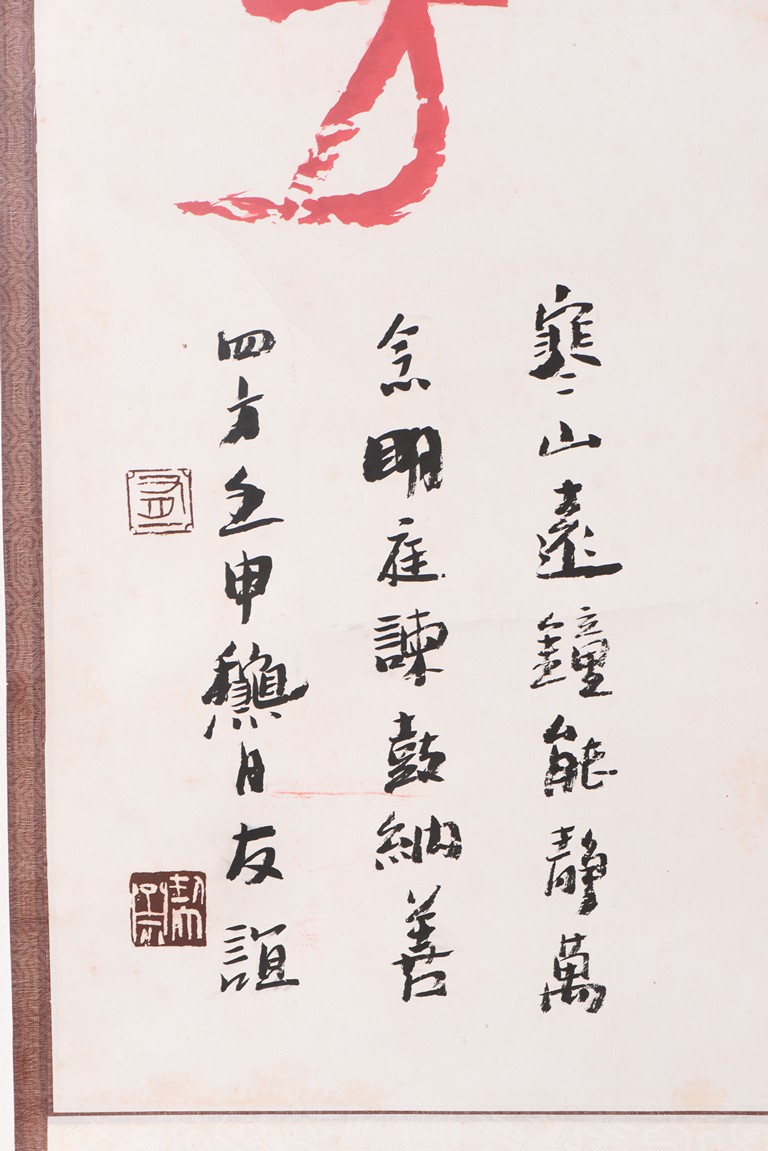 寒山遠鐘能靜萬
念明庭諫鼓納善
四方壬申龝月友誼